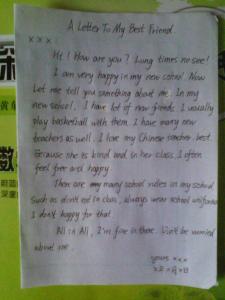 A Letter To My Best Friend
x x x :
Hi ! How are you ? Lung times no see!
I am very happy in my new school. Now
Let me tell you something about me. In my
new school, I have lot of new friends. I usually
play basketball with them. I have many new
teachers as well. I love my Chinese teacher best.
Because she is kind and in her class, I often
feel free and happy.
There are many school rules in my school
Such as don't eat in class, always wear school uniforms
I don't happy for that.
All in All, I'm fine in there. Don't be worried
about me.
yours xxx
x年x月x日
深
数